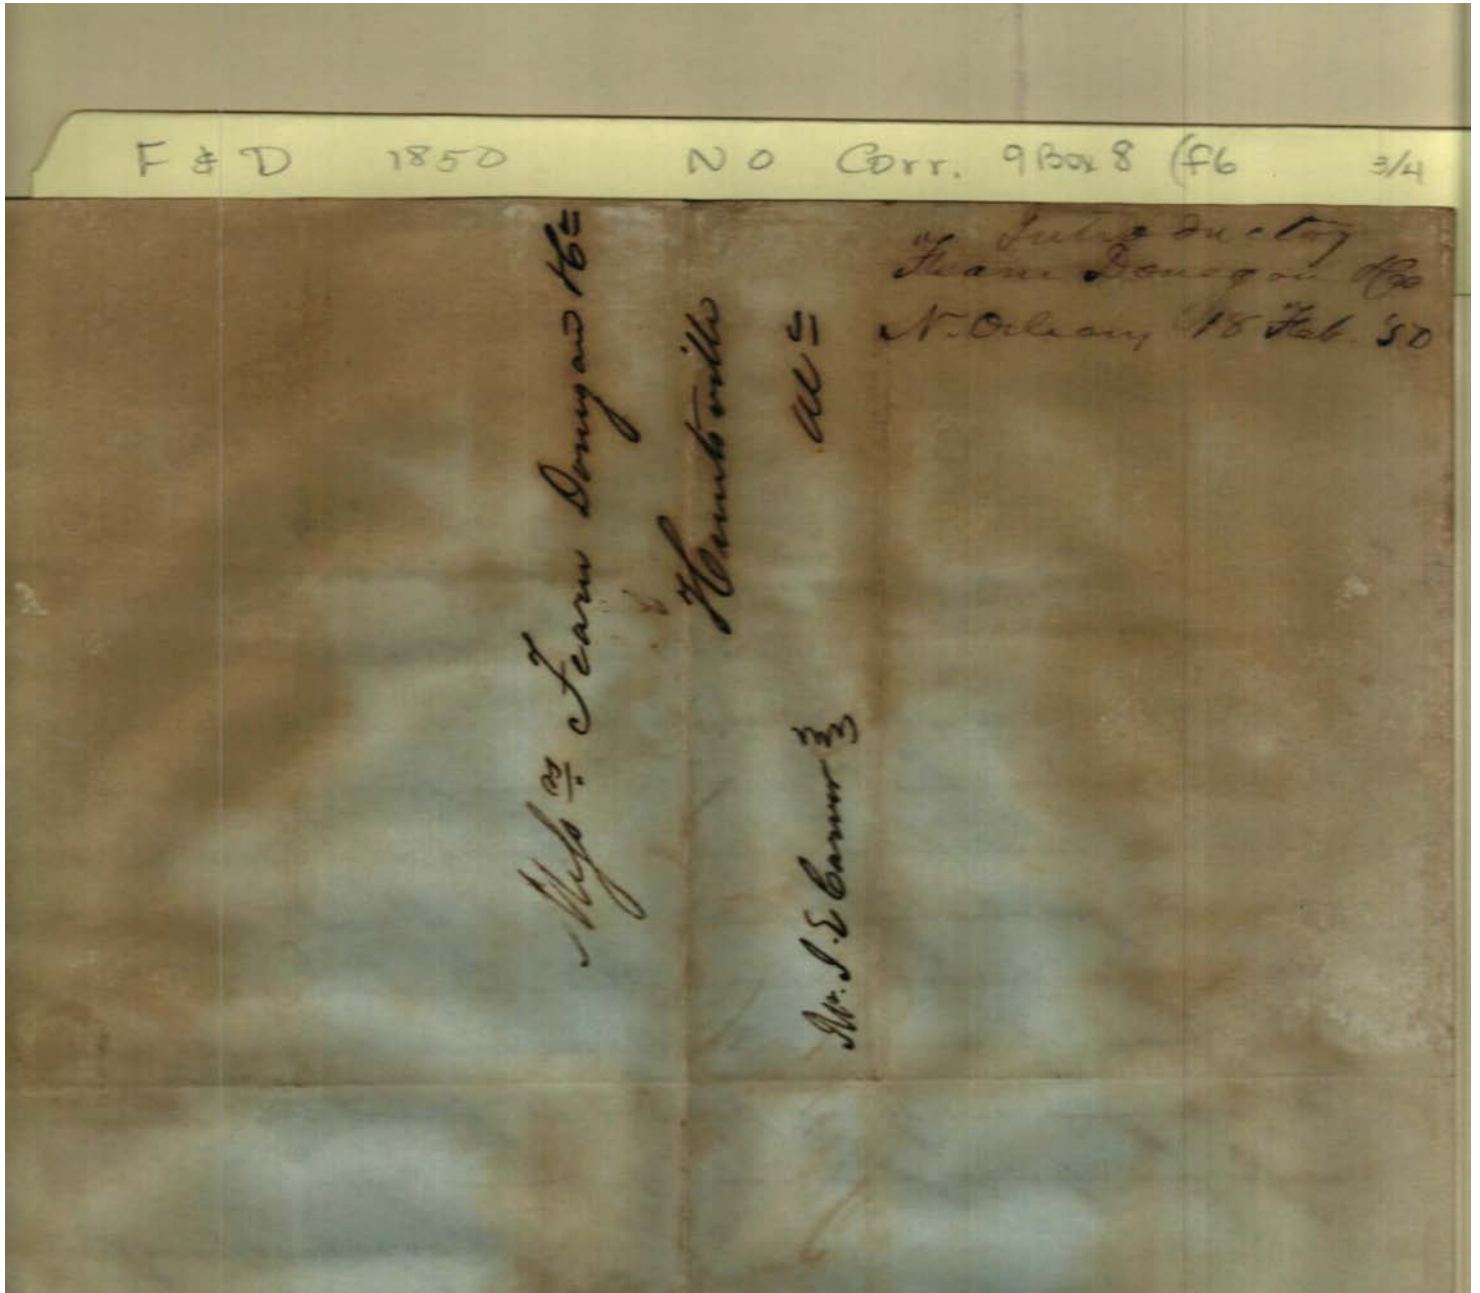 F & D 1850 NO Corr. 9 Box 8 (f6 3/4
Introductory
Fearn Donegan & Co
N. Orleans 18 Feb. '50
Messrs Fearn Donegan & Co
Huntsville
Ala